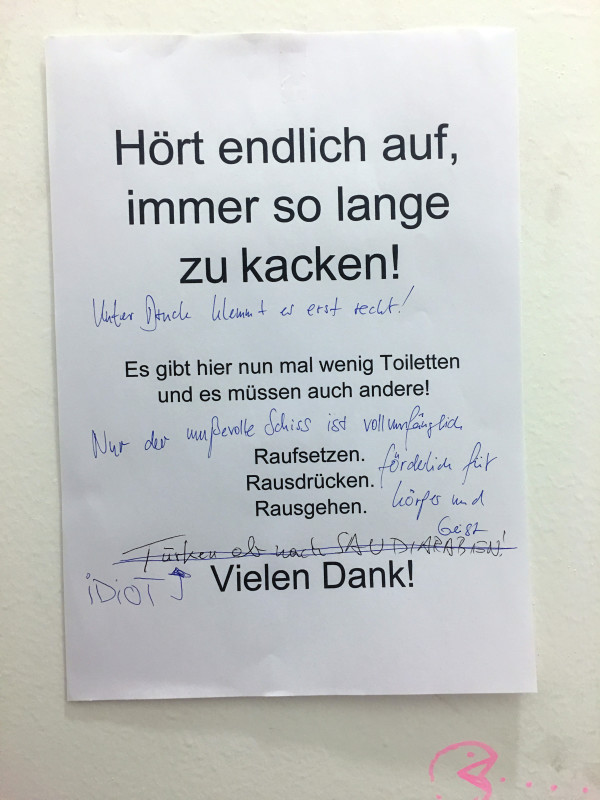 Hört endlich auf,
immer so lange
zu kacken!
Unter Druck klemmt es erst recht!
Es gibt hier nun mal wenig Toiletten
und es müssen auch andere!
Nur der mußevolle Schiss ist vollumfänglich
Raufsetzen.
förderlich für
Rausdrücken.
Körper und
Rausgehen.
Geist
Türken ab nach SAUDIARABIEN!
iDiOT
Vielen Dank!